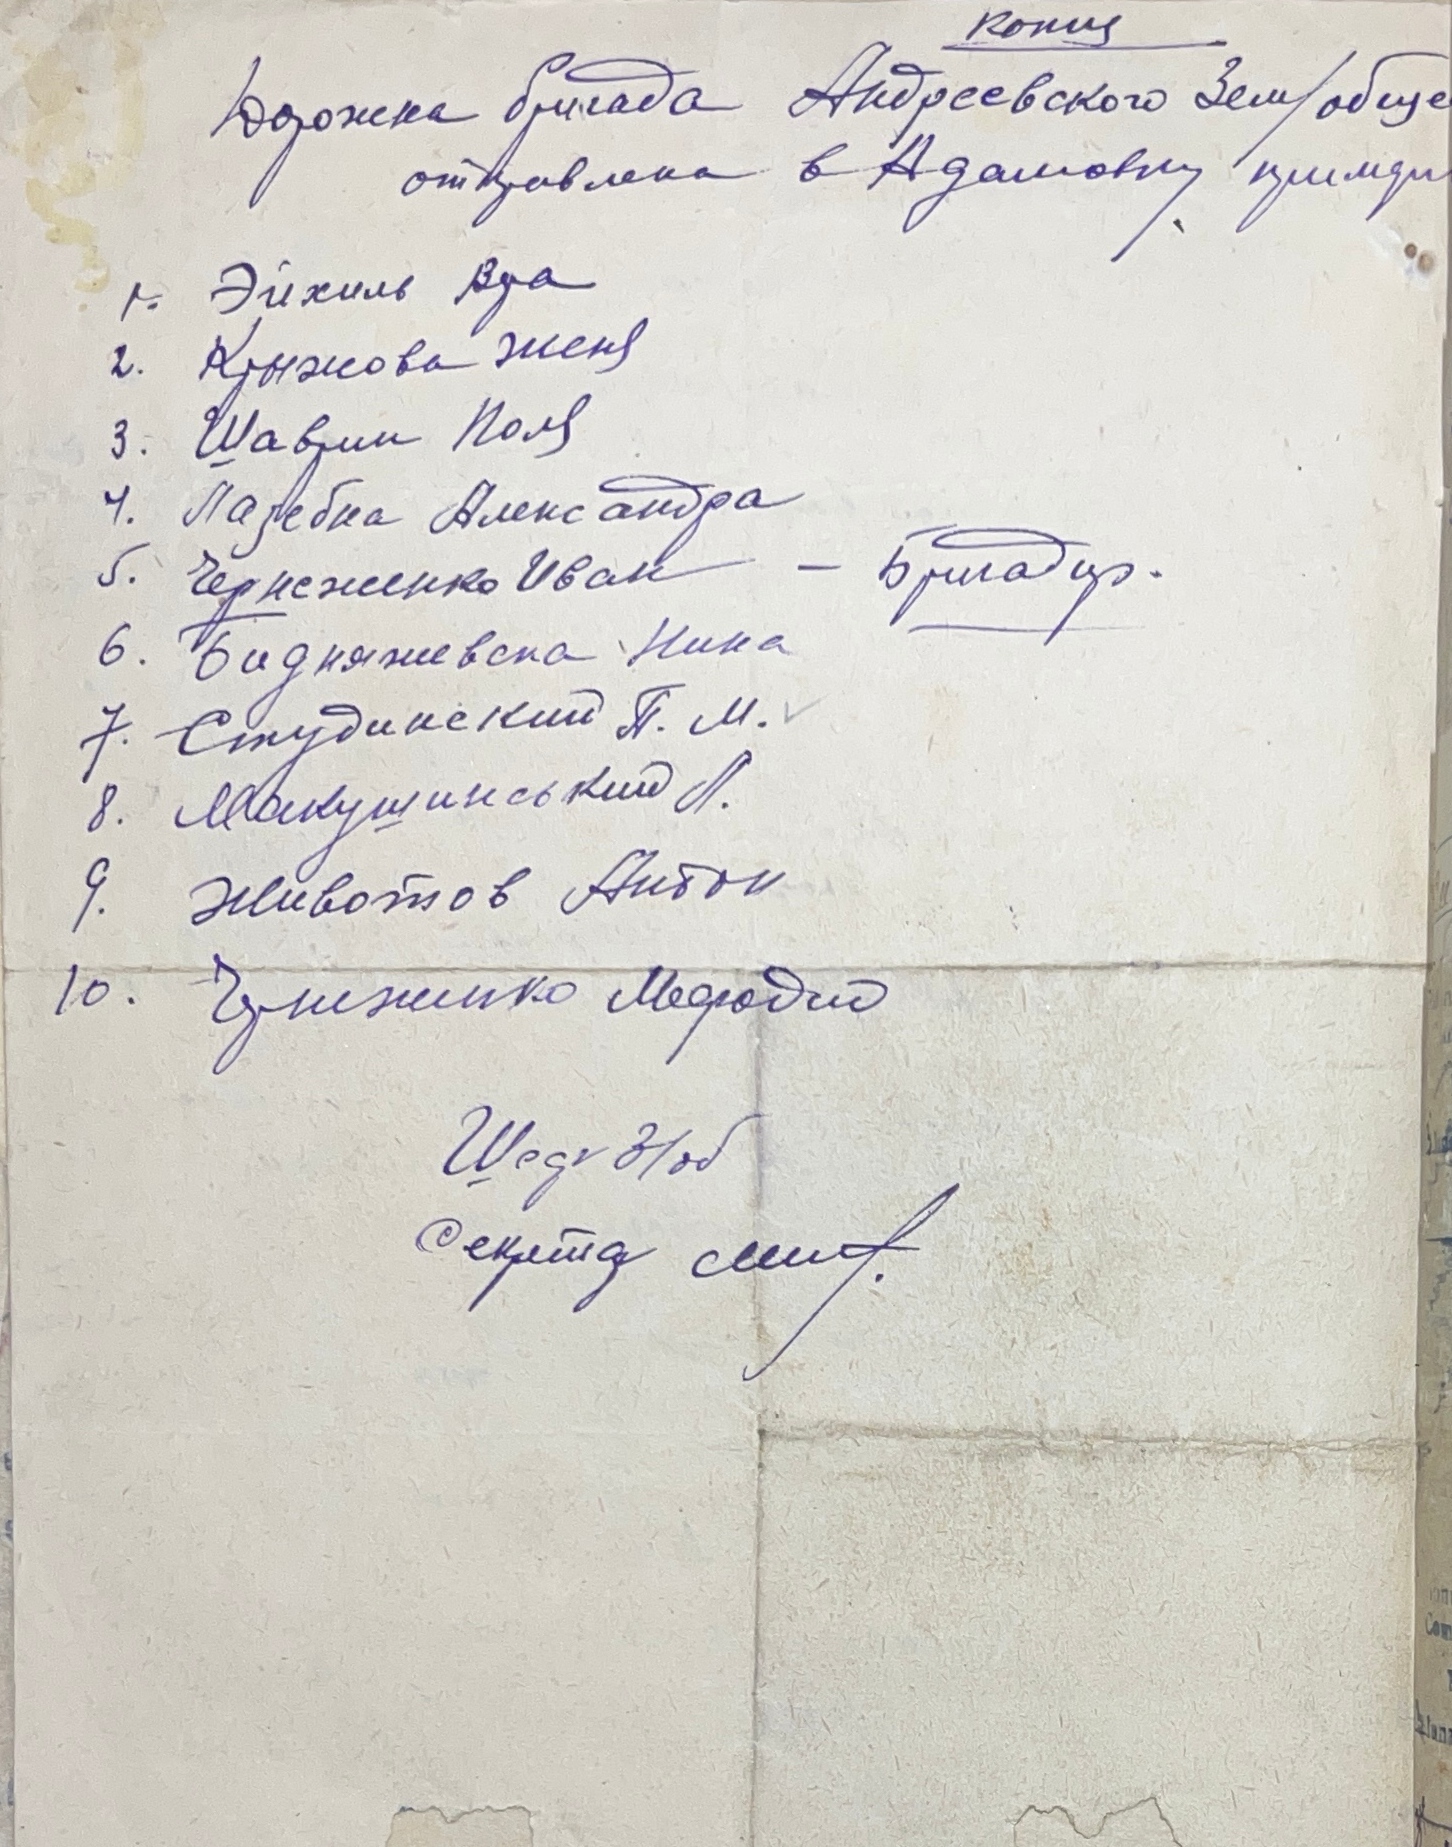 Копия
Дорожна бригада Андреевского Зем/обще
отправлена в Адамовку
1. Эйхиль
2. Крыжова Женя
3. Шаврин Поля
4. Лазебна Александра
5. Чернеженко Иван — Бригадир.
6. Бидняжевска Нина
7. Студинский П. М.
8. Макушинський Л.
9. Животов Антон
10. Чернеженко Мефодий
З/об
Секрета